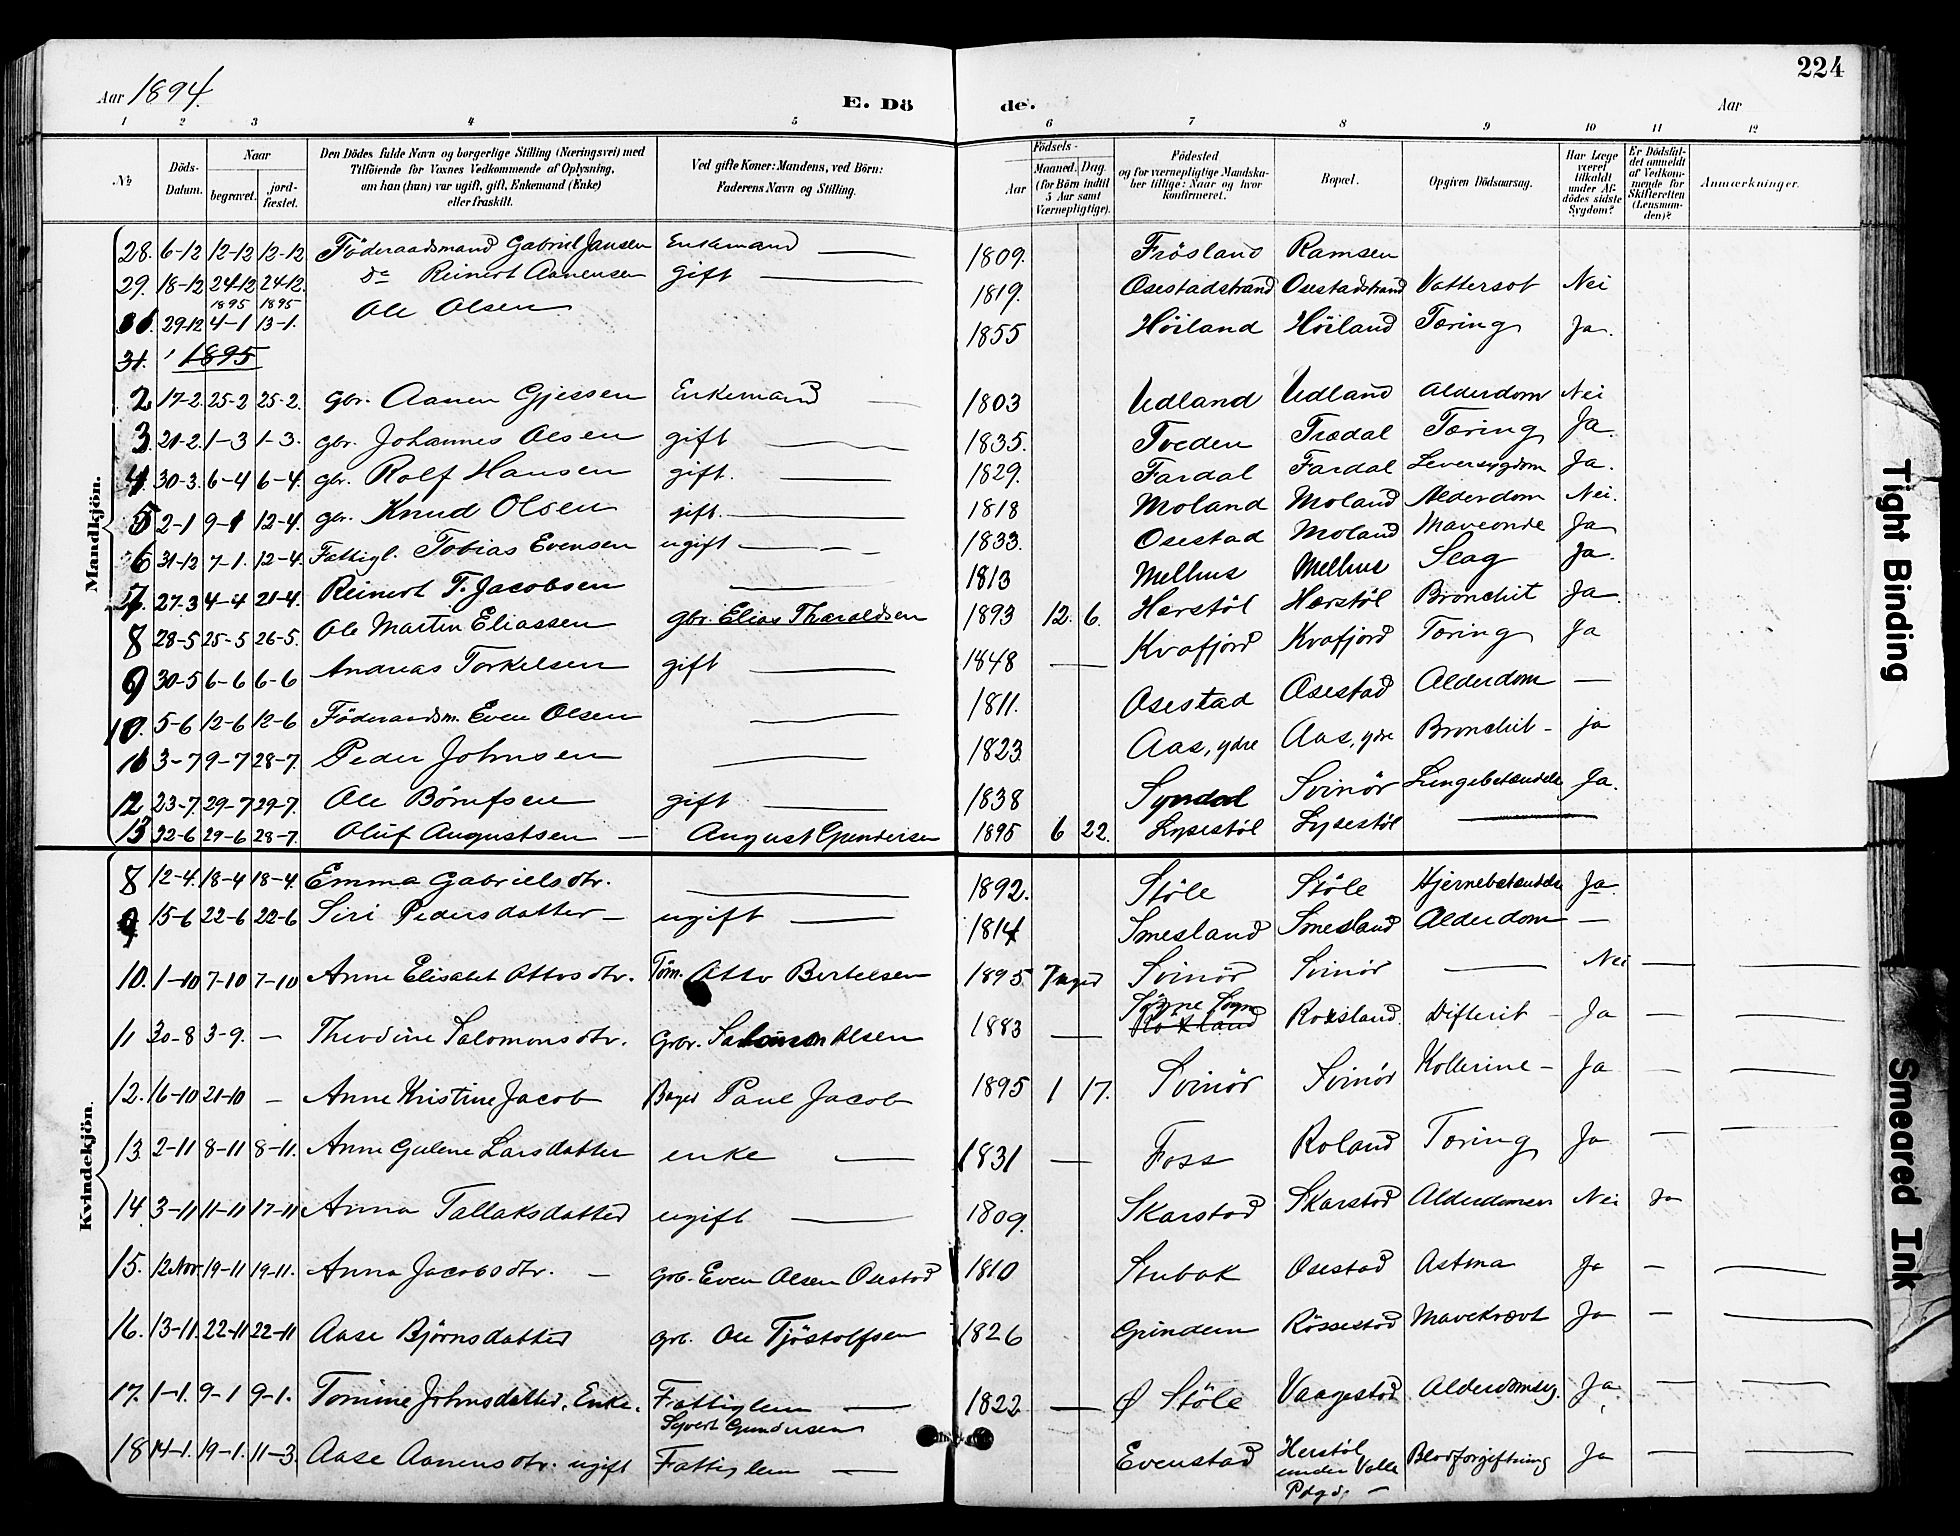 Aar 1894. E. Dö de. Aar 224
1 2 3 4 5 6 7 8 9 10 11 12
№ Döds-Datum. Naar begravet. jord-fæstet. Den Dödes fulde Navn og borgerlige Stilling (Næringsvei) med Tilföiende for Voxnes Vedkommende af Oplysning, om han (hun) var ugift, gift, Enkemand (Enke) eller fraskilt. Ved gifte Koner: Mandens, ved Börn: Faderens Navn og Stilling. Födsels- Aar Maaned. Dag. (for Börn indtil 5 Aar samt Værnepligtige). Födested og for værnepligtige Mandskaber tillige: Naar og hvor konfirmeret. Bopæl. Opgiven Dödsaarsag. Har Læge været tilkaldt under Afdödes sidste Sygdom? Er Dödsfaldet anmeldt af Vedkommende for Skifteretten (Lensmanden)? Anmærkninger.
Mandkjön.
28. 6-12 12-12 12-12 Föderaadsmand Gabriel Jansen Enkemand 1809. Frösland Ramsen
29. 18-12 24-12 24-12. do Reinert Aanensen gift 1819. Osestadstrand Osestadstrand Vattersot Nei
1895 1895
29-12 4-1 13-1. Ole Olsen 1855 Höiland Höiland Tæring Ja.
31. 1895
2 17-2. 25-2 25-2. gbr. Aanen Gjessen Enkemand 1803 Udland Udland Alderdom Nei
3 21-2. 1-3 1-3. gbr. Johannes Olsen gift 1835. Tveden Trædal Tæring Ja.
4. 30-3. 6-4 6-4. gbr. Rolf Hansen gift. 1829. Fardal Fardal Leversygdom Ja.
5 2-1 9-1 12-4. gbr. Knud Olsen gift. 1818 Moland Moland Alderdom Nei.
6 31-12 7-1. 12-4. Fattigl. Tobias Evensen ugift 1833. Osestad Moland Maveonde Ja
7. 27-3 4-4 21-4. Reinert T. Jacobsen 1813 Melhus Melhus Slag Ja.
8 28-5 25-5 26-5. Ole Martin Eliassen gbr. Elias Tharaldsen 1893 12. 6. Herstöl Herstöl Bronchit Ja
9 30-5 6-6 6-6 Andreas Torkelsen gift 1848 Kvafjord Kvafjord Tæring Ja
10. 5-6 12-6 12-6 Föderaadsm. Even Olsen 1811. Osestad Osestad Alderdom
11 3-7 9-7 28-7. Peder Johnsen 1823 Aas, ydre Aas, ydre Bronchit - ja
12 23-7. 29-7 29-7. Ole Börufsen gift 1838 Syndal Svinör Lungebetændelse Ja.
13 22-6 29-6 28-7. Oluf Augustsen August Gundersen 1895 6 22. Lysestöl Lysestöl
Kvindekjön.
8 12-4. 18-4 18-4. Emma Gabrielsdtr. 1892. Stöle Stöle Hjernebetændelse Ja.
9 15-6 22-6 22-6 Siri Pedersdatter ugift 1814 Smesland Smesland Alderdom
10. 1-10 7-10 7-10 Anne Elisabet Ottosdtr. Töm. Otto Bertelsen 1895. Svinör Svinör Nei
11 30-8 3-9. - Theodine Salomonsdtr. Gbr. Salomon Olsen 1883 Sögne Sogn Roxland Roxsland. Difterit Ja
12. 16-10 21-10 - Anne Kristine Jacob Bager Paul Jacob 1895 1 17. Svinör Svinör Kollerine - Ja
13 2-11 8-11 8-11. Anne Gulene Larsdatter enke 1831 Foss Roland Tæring Ja
14. 3-11 11-11 17-11 Anna Tallaksdatter ugift 1809. Skarstad Skarstad Alderdomssv Nei Ja
15. 12 Nov. 19-11 19-11. Anna Jacobsdtr. Grb. Even Olsen Osestad 1810 Stubok Osestad Astma Ja
16. 13-11. 22-11 22-11 Aase Björnsdatter grb. Ole Tjöstolfsen 1826 Grindem Rössestad Mavekræft Ja
17. 1-1. 9-1 9-1. Tomine Johnsdatter, Enke. Fattiglem 1822 Ø Stöle Vaagestad Alderdomssv. Ja
Syvert Gundersen
18 14-1. 19-1. 11-3. Aase Aanensdtr. ugift Fattiglem Evenstad Herstöl under Valle Pdgd. Blodforgiftning Ja
Tight Binding
Smeared Ink